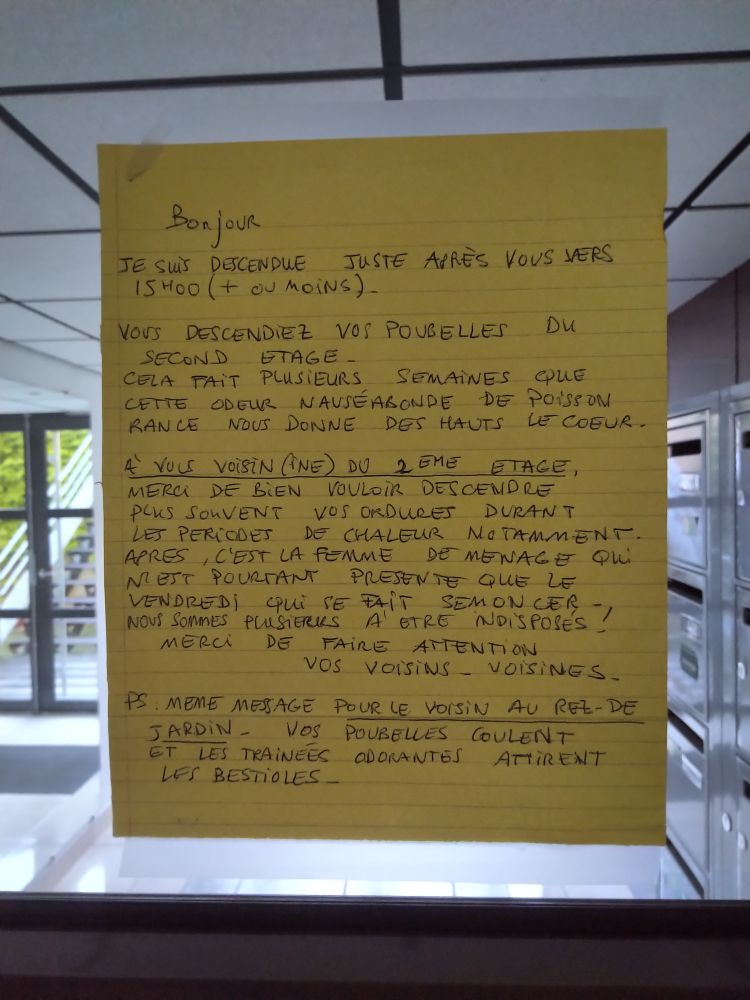 Bonjour
JE SUIS DESCENDUE JUSTE APRÈS VOUS VERS
15H00 (+ OU MOINS)_
VOUS DESCENDIEZ VOS POUBELLES DU
SECOND ETAGE_
CELA FAIT PLUSIEURS SEMAINES QUE
CETTE ODEUR NAUSÉABONDE DE POISSON
RANCE NOUS DONNE DES HAUTS LE COEUR.
A VOUS VOISIN (INE) DU 2EME ETAGE,
MERCI DE BIEN VOULOIR DESCENDRE
PLUS SOUVENT VOS ORDURES DURANT
LES PERIODES DE CHALEUR NOTAMMENT.
APRES, C'EST LA FEMME DE MENAGE QUI
N'EST POURTANT PRESENTE QUE LE
VENDREDI QUI SE FAIT SEMONCER_,
NOUS SOMMES PLUSIEURS A ETRE INDISPOSES!
MERCI DE FAIRE ATTENTION
VOS VOISINS_ VOISINES_
PS: MEME MESSAGE POUR LE VOISIN AU REZ-DE
JARDIN_ VOS POUBELLES COULENT
ET LES TRAINÉES ODORANTES ATTIRENT
LES BESTIOLES_